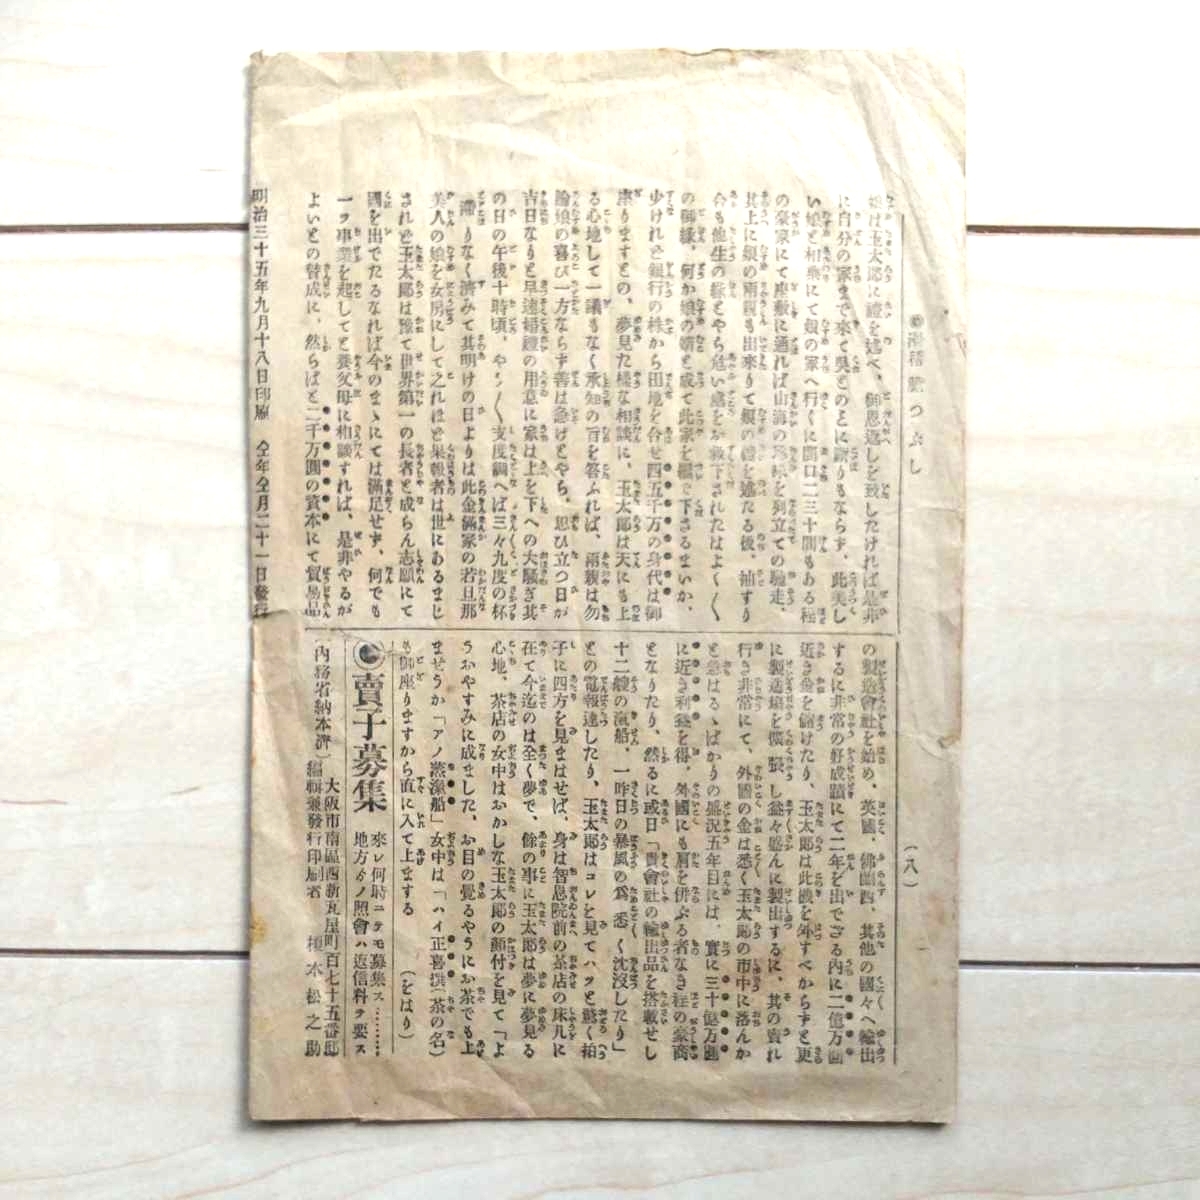 つぶし
(八)
娘は玉太郎に禮を述べ、御恩返しを致したければ是非
に自分の家まで來て吳とのとに斷りもならず、此美し
い娘と相乘にて娘の家へ行くに間口二三十間もある程
の豪家にて座敷に通れば山海の珍味を列立ての馳走、
其上に娘の兩親も出來りて娘の禮を述たる後、袖すり
合も他生の緣とやら危い處をお救下されたはよく〱
の御緣、何か娘の婿と成て此家を繼で下さるまいか、
步けれど銀行の株から田地を合せ四五千万の身代は御
座りますとの、夢見た樣な相談に、玉太郎は天にも上
る心地して一議もなく承知の旨を答ふれば、兩親は勿
論娘の喜び一方ならず善は急げとやら、思ひ立つ日が
吉日なりと早速婚禮の用意に家は上を下への大騷ぎ其
の日の午後十時頃、やう〱支度調へば三々九度の杯
滯りなく濟みて其明けの日よりは此金滿家の若旦那
美人の娘を女房にして之れほど果報者は世にあるまじ
されど玉太郎は豫て世界第一の長者と成らん志願にて
國を出でたるなれば今のまゝにては滿足せず、何でも
一ツ事業を起してと養父母に相談すれば、是非やるが
よいとの賛成に、然らばと二千万圓の資本にて貿易品
の製造會社を始め、英國、佛蘭西、其他の國々へ輸出
するに非常の好成蹟にて二年を出でざる內に二億万圓
近き金を儲けたり、玉太郎は此機を外すべからずと更
に製造場を擴張し益々盛んに製出するに、其の賣れ
行き非常にて、外國の金は悉く玉太郎の市中に落んか
と急はるゝばかりの盛況五年目には、實に三十億万圓
に近き利益を得、外國にも肩を併ぶる者なき程の豪商
となりたり、然るに或日「貴會社の輸出品を搭載せし
十二艘の滊船、一昨日の暴風の爲悉く沈沒したり」
との電報達したり、玉太郎はコレを見てハツと驚く拍
子に四方を見まはせば、身は智恩院前の茶店の床几に
在て今迄のは全く夢で、餘の事に玉太郎は夢に夢見る
心地、茶店の女中はおかしな玉太郎の顏付を見て「よ
うおやすみに成ました、お目の覺るやうにお茶でも上
ませうか「アノ蒸滊船」女中は「ハイ正喜撰(茶の名)
も御座りますから直に入て上まする
(をはり)
◉賣子募集
來レ何時ニテモ募集ス………
地方ゟノ照會ハ返信料ヲ要ス
大阪市南區西新瓦屋町百七十五番邸
(內務省納本濟)編輯兼發行印刷者 榎本松之助
明治三十五年九月十八日印刷 仝年仝月二十一日發行